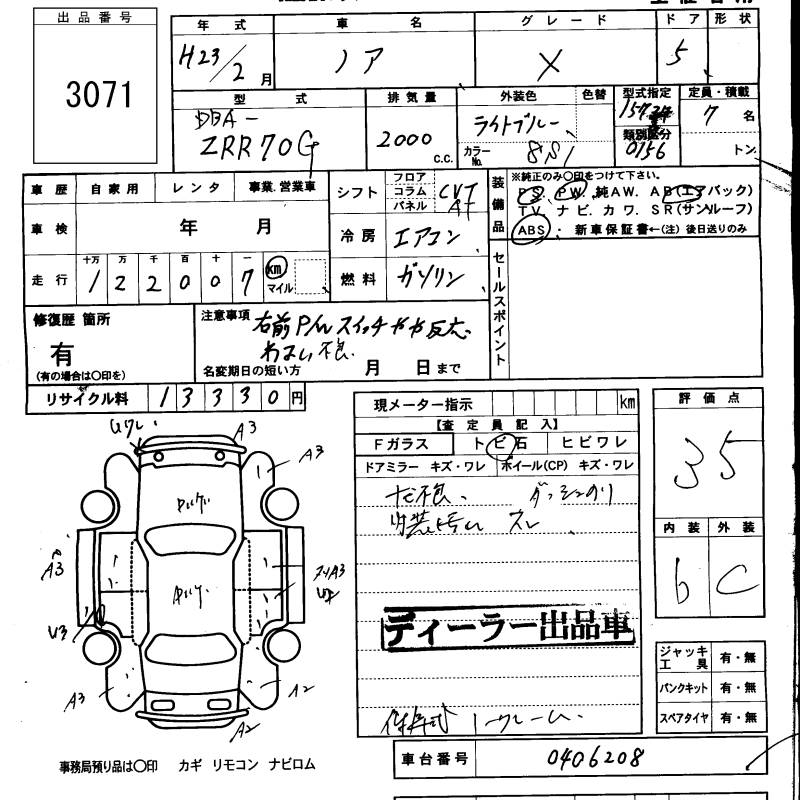 出品番号
3071
年式 車名 グレード ドア 形状
H23/2月 ノア X 5
型式 排気量 外装色 色替 型式指定 定員・積載
DBA-
ZRR70G 2000 C.C. ライトブルー カラーNo. 8S1 類別区分 0156 7名 トン
車歴 自家用 レンタ 事業.営業車
シフト フロア コラム パネル CVT AT
装備品
※純正のみ〇印をつけて下さい。
PS. PW. 純AW. AB(エアバック)
TV. ナビ. カワ. SR(サンルーフ)
ABS. 新車保証書←(注)後日送りのみ
車検 年 月
冷房 エアコン
走行 十万 万 千 百 十 一
122007 km マイル
燃料 ガソリン
セールスポイント
修復歴 箇所
有
(有の場合は〇印を)
注意事項
右前P/W スイッチやや反応
わるい 不良.
名変期日の短い方 月 日まで
リサイクル料 13330円
現メーター指示 km
【査定員記入】
Fガラス トビ石 ヒビワレ
ドアミラー キズ・ワレ ホイール(CP) キズ・ワレ
内装 スレ
ディーラー出品車
評価点
35
内装 外装
b C
ジャッキ工具 有・無
パンクキット 有・無
スペアタイヤ 有・無
車台番号 0406208
A3
A3
A3
A3
U3
A3
A2
A2
事務局預り品は〇印 カギ リモコン ナビロム